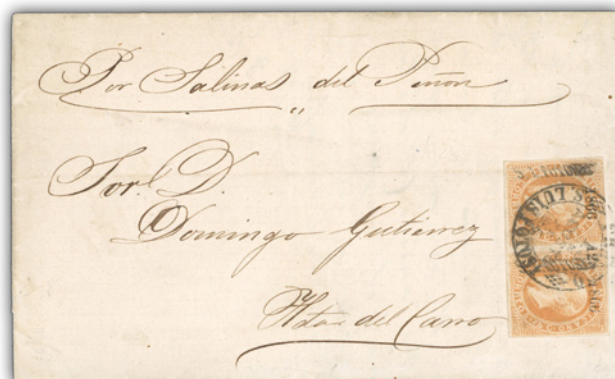 Por Salinas del Peñon
Sor. D.
Domingo Gutierrez
Hda. del Carro
S. LUIS POTOSI
1866